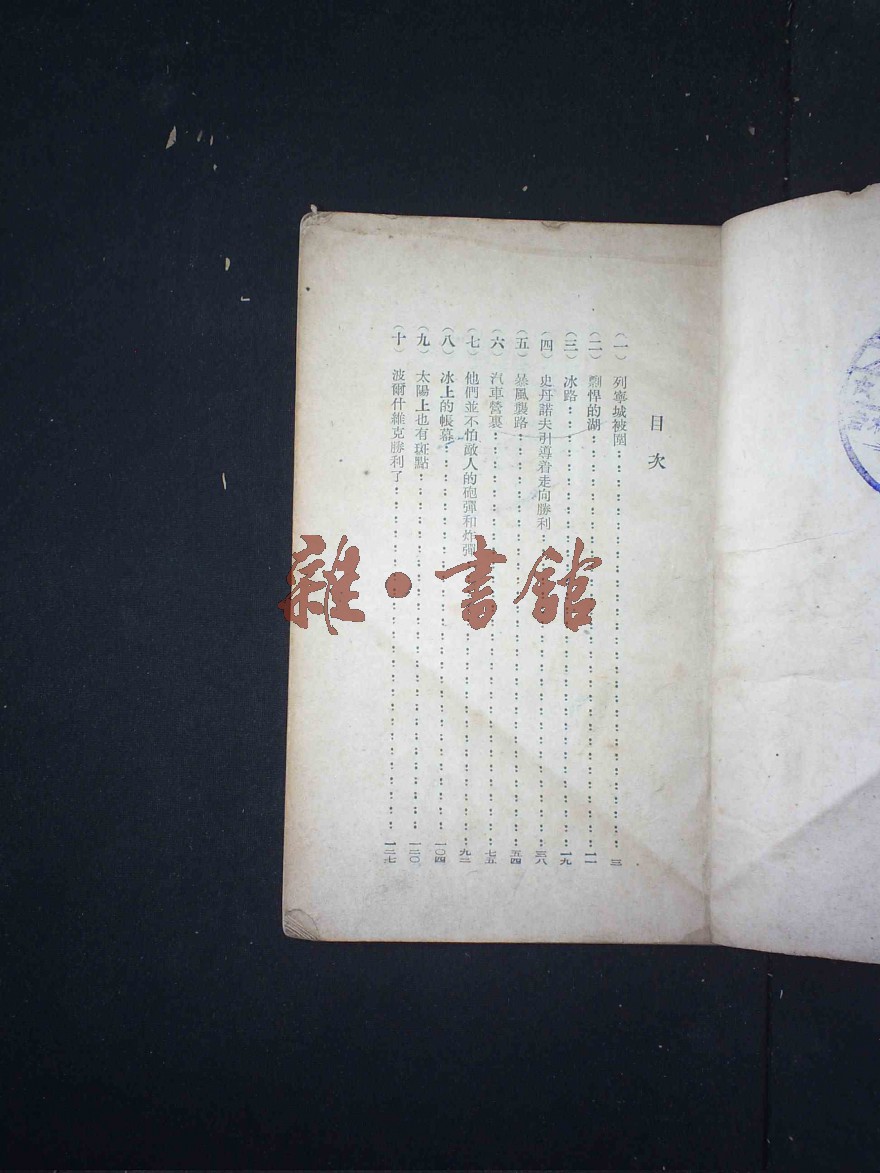 目次
(一) 列寧城被圍 三
(二) 剽悍的湖 一一
(三) 冰路 一九
(四) 史丹諾夫引導着走向勝利 三八
(五) 暴風襲路 五四
(六) 汽車營裏 七五
(七) 他們並不怕敵人的砲彈和炸彈 九二
(八) 冰上的帳幕 一〇四
(九) 太陽上也有斑點 一二〇
(十) 波爾什維克勝利了 一二七
雜·書館